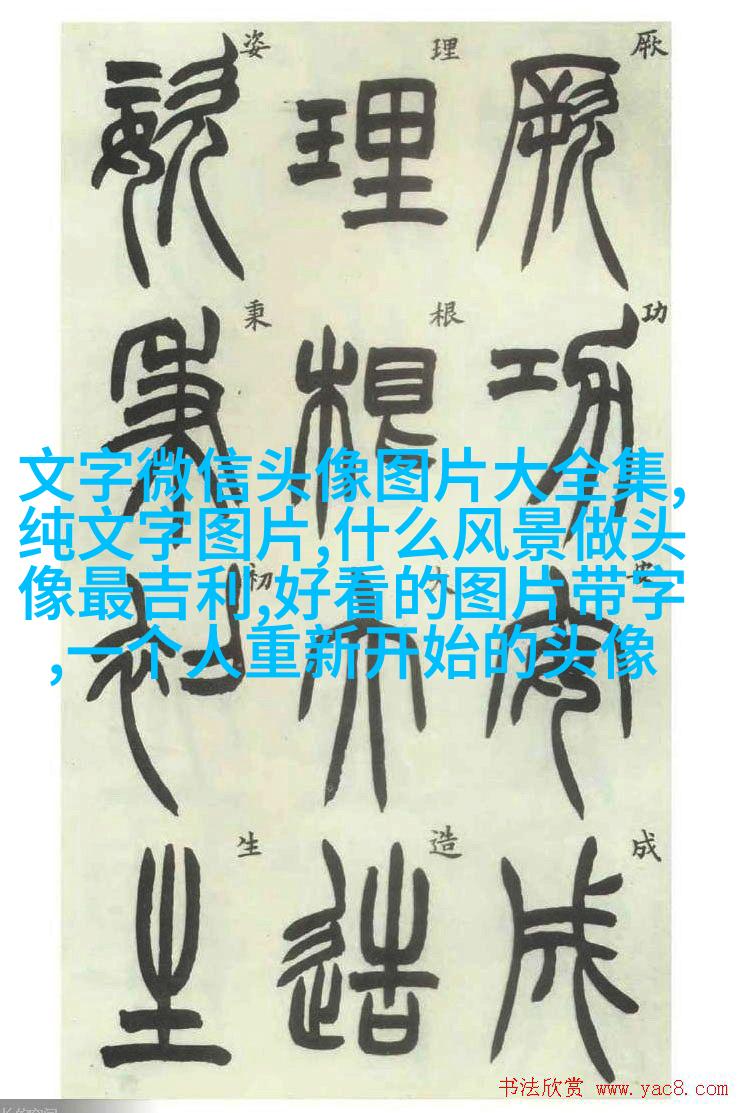 厥功安成
厥功成
理根大造
理根大造
姿秉初生
姿秉初生
文字微信头像图片大全集,
纯文字图片,什么风景做头
像最吉利,好看的图片带字
,一个人重新开始的头像
书法欣赏 www.yac8.com